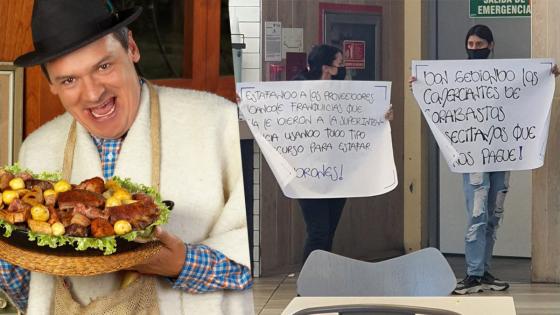 SALIDA DE
EMERGENCIA
ESTAFANDO A LOS PROVEEDORES
DANDOLE FRANQUICIAS QUE
YA LE DIERON A LA SUPERINTEN
CIA USANDO TODO TIPO
CURSO PARA ESTAFAR
DRONES!
DON GEDIONDO LOS
COMERCIANTES DE
CORABASTOS
NECESITAMOS QUE
NOS PAGUE!